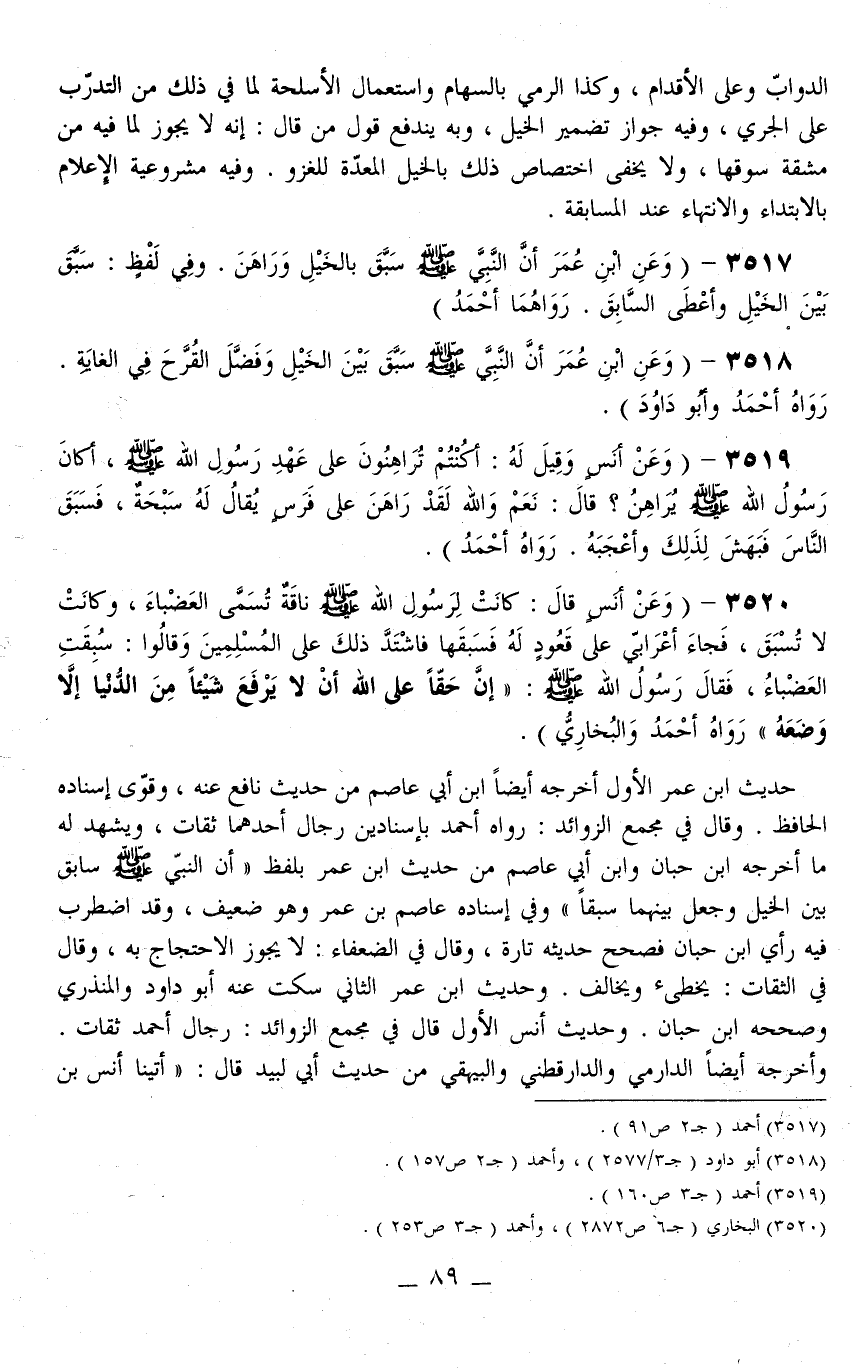 الدوابّ وعلى الأقدام ، وكذا الرمي بالسهام واستعمال الأسلحة لما في ذلك من التدرّب
على الجري ، وفيه جواز تضمير الخيل ، وبه يندفع قول من قال : إنه لا يجوز لما فيه من
مشقة سوقها ، ولا يخفى اختصاص ذلك بالخيل المعدّة للغزو . وفيه مشروعية الإعلام
بالابتداء والانتهاء عند المسابقة .
٣٥١٧ – ( وَعَنِ ابْنِ عُمَرَ أنَّ النَّبِيَّ ﷺ سَبَّقَ بالخَيْلِ وَرَاهَنَ . وفِي لَفْظٍ : سَبَّقَ
بَيْنَ الخَيْلِ وأعْطَى السَّابِقَ . رَوَاهُمَا أحْمَدُ )
٣٥١٨ – ( وَعَنِ ابْنِ عُمَرَ أنَّ النَّبِيَّ ﷺ سَبَّقَ بَيْنَ الخَيْلِ وَفَضَّلَ القُرَّحَ فِي الغايَةِ .
رَوَاهُ أحْمَدُ وأبُو دَاوُدَ ) .
٣٥١٩ – ( وَعَنْ أنَسٍ وَقِيلَ لَهُ : أكُنْتُمْ تُرَاهِنُونَ على عَهْدِ رَسُولِ الله ﷺ ، أكانَ
رَسُولُ الله ﷺ يُرَاهِنُ ؟ قالَ : نَعَمْ وَالله لَقَدْ رَاهَنَ على فَرَسٍ يُقالُ لَهُ سَبْحَةٌ ، فَسَبَقَ
النَّاسَ فَبَهَشَ لِذَلِكَ وأعْجَبَهُ . رَوَاهُ أحْمَدُ ) .
٣٥٢٠ – ( وَعَنْ أنَسٍ قالَ : كانَتْ لِرَسُولِ الله ﷺ ناقَةٌ تُسَمَّى العَضْباءَ ، وكانَتْ
لا تُسْبَقَ ، فَجاءَ أعْرَابيّ على قَعُودٍ لَهُ فَسَبَقَها فاشْتَدَّ ذلكَ على المُسْلِمِينَ وَقالُوا : سُبِقَتِ
العَضْباءُ ، فَقالَ رَسُولُ الله ﷺ : « إنَّ حَقّاً على الله أنْ لا يَرْفَعَ شَيْئاً مِنَ الدُّنْيا إلَّا
وَضَعَهُ » رَوَاهُ أحْمَدُ وَالبُخارِيُّ ) .
حديث ابن عمر الأول أخرجه أيضاً ابن أبي عاصم من حديث نافع عنه ، وقوّى إسناده
الحافظ . وقال في مجمع الزوائد : رواه أحمد بإسنادين رجال أحدهما ثقات ، ويشهد له
ما أخرجه ابن حبان وابن أبي عاصم من حديث ابن عمر بلفظ « أن النبيّ ﷺ سابق
بين الخيل وجعل بينهما سبقاً » وفي إسناده عاصم بن عمر وهو ضعيف ، وقد اضطرب
فيه رأي ابن حبان فصحح حديثه تارة ، وقال في الضعفاء : لا يجوز الاحتجاج به ، وقال
في الثقات : يخطىء ويخالف . وحديث ابن عمر الثاني سكت عنه أبو داود والمنذري
وصححه ابن حبان . وحديث أنس الأول قال في مجمع الزوائد : رجال أحمد ثقات .
وأخرجه أيضاً الدارمي والدارقطني والبيهقي من حديث أبي لبيد قال : « أتينا أنس بن
(٣٥١٧) أحمد ( جـ٢ ص٩١ ) .
(٣٥١٨) أبو داود ( جـ٣/٢٥٧٧ ) ، وأحمد ( جـ٢ ص١٥٧ ) .
(٣٥١٩) أحمد ( جـ٣ ص١٦٠ ) .
(٣٥٢٠) البخاري ( جـ٦ ص٢٨٧٢ ) ، وأحمد ( جـ٣ ص٢٥٣ ) .
– ٨٩ –